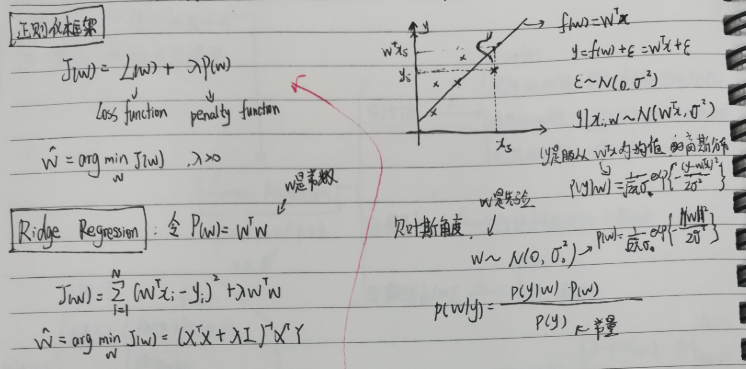 正则化框架
J(w) = L(w) + λP(w)
Loss function penalty function
ŵ = arg min J(w) , λ>0
w
w是常数
Ridge Regression : 令 P(w) = wᵀw
J(w) = Σ (wᵀxᵢ - yᵢ)² + λwᵀw
N
i=1
ŵ = arg min J(w) = (XᵀX + λI)⁻¹XᵀY
w
y
wᵀx₅
y₅
x₅
f(w) = wᵀx
y = f(w) + ε = wᵀx + ε
ε ~ N(0, σ²)
y|x;w ~ N(wᵀx, σ²)
(y是服从 wᵀx为均值 的高斯分布
p(y|w) = 1/√2πσ exp{-(y-wᵀx)²/2σ²}
w是先验
贝叶斯角度.
w ~ N(0, σ₀²) → p(w) = 1/√2πσ₀ exp{-‖w‖²/2σ₀²}
p(w|y) = p(y|w)·p(w) / p(y) ← 常量